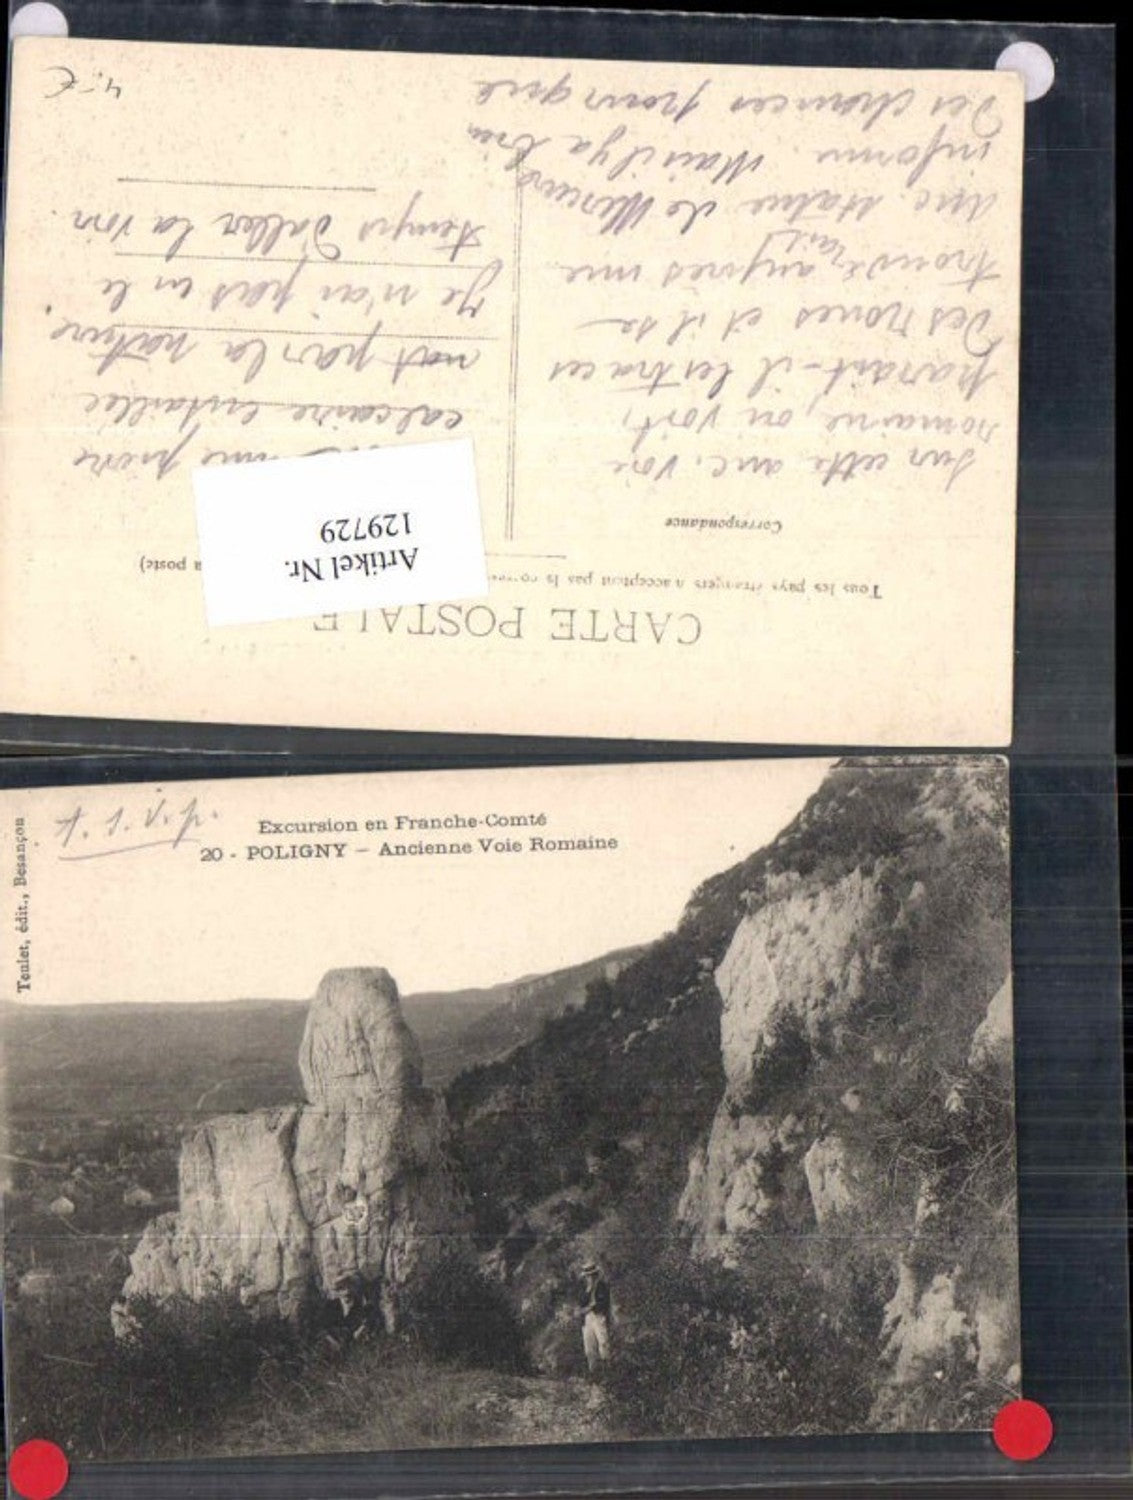 CARTE POSTALE
Tous les pays étrangers n'acceptent pas la
a poste)
Correspondance
Artikel Nr.
129729
Sur cette anc. voie
romaine, on voit,
parait-il les traces
des roues et il se
trouverait auprès une
une statue de Mercure
informe. Mais il y a bien
des chances pour que
une pierre
calcaire entaillée
par la nature.
Je n'ai pas eu le
temps d'aller la voir
4.- €
Excursion en Franche-Comté
20 - POLIGNY — Ancienne Voie Romaine
Teulet, édit., Besançon